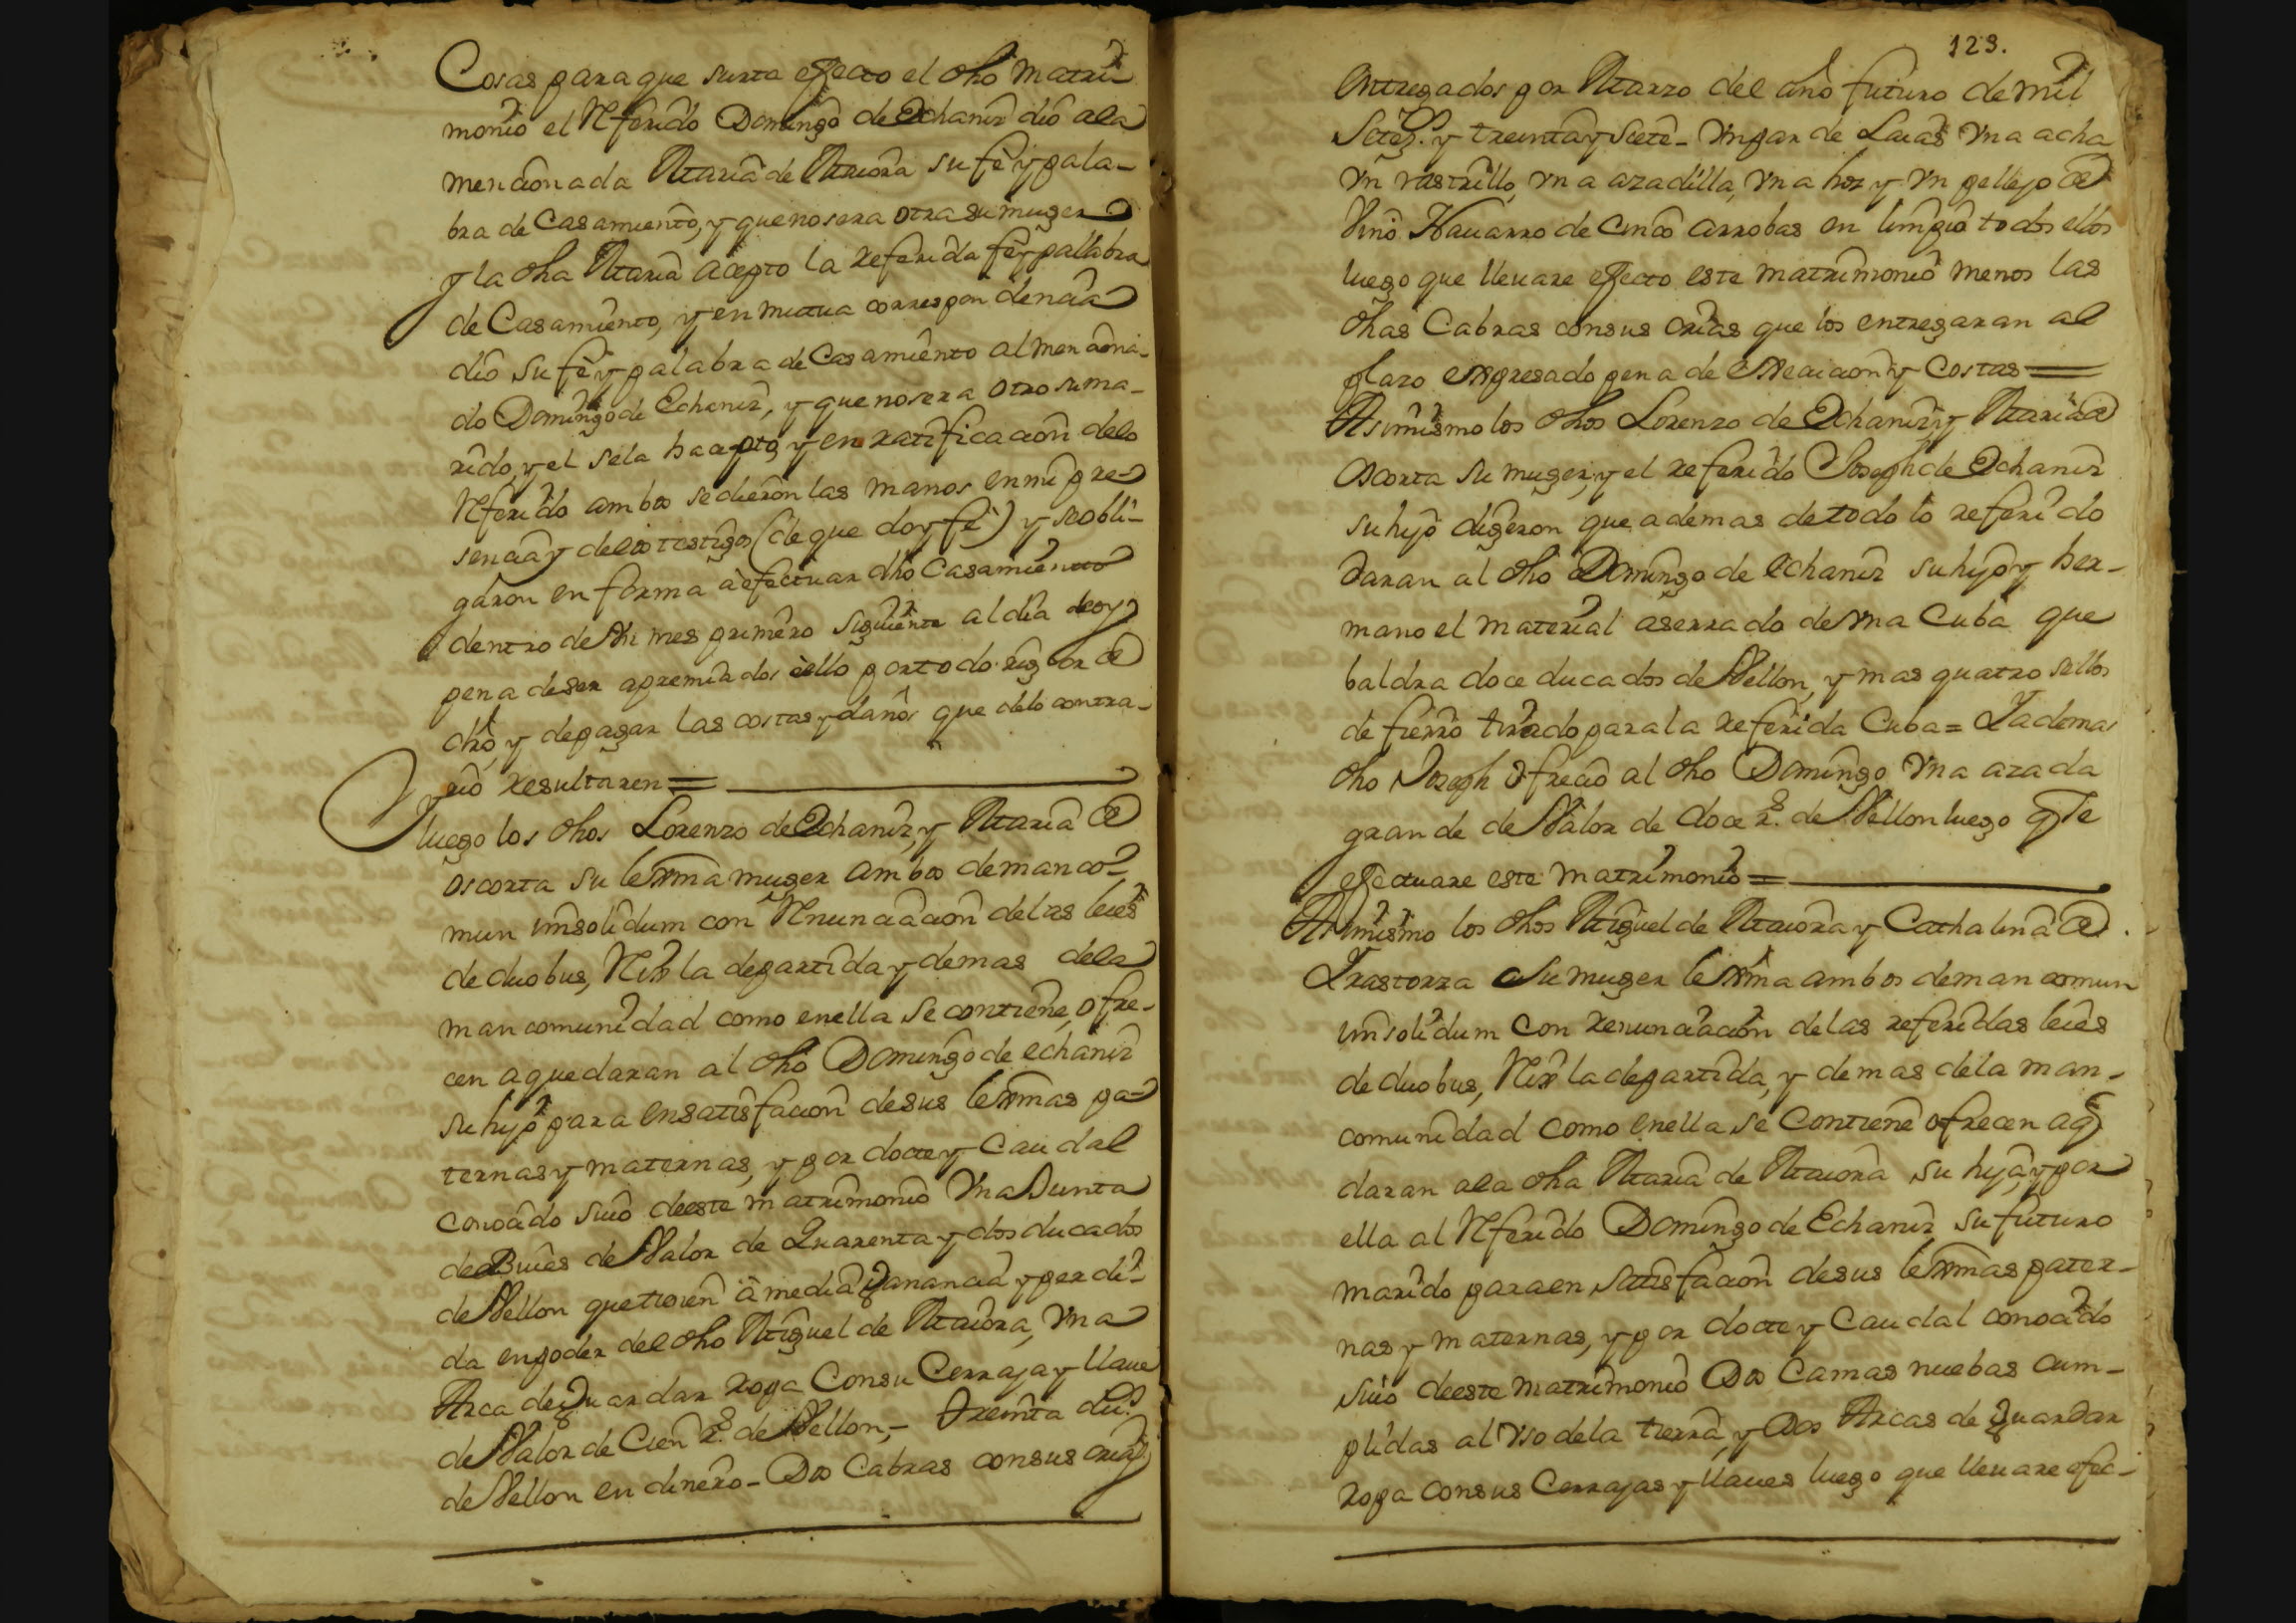 Cosas para que surta efecto el dho matri-
monio el Referido Domingo de Echaniz dio a la
mencionada Maria de Maiora su fe y pala-
bra de Casamiento, y que no sera otra su muger
y la dha Maria acepto la referida fe y pallabra
de Casamiento, y en mutua correspondencia
dio su fe y palabra de Casamiento al menciona-
do Domingo de Echaniz, y que no sera otro su ma-
rido, y el se la haepto, y en ratificacion de lo
Referido ambos se dieron las manos en mi pre-
sencia y de los testigos (de que doy fe) y se obli-
garon en forma a efectuar dho Casamiento
dentro de Un mes primero siguiente al dia de oy
pena de ser apremiados a ello por todo rigor de
dro, y de pagar las costas y daños que de lo contra-
rio resultaren =
Y luego los dhos Lorenzo de Echaniz, y Maria de
Ascorta su lexma muger ambos de manco-
mun insolidum con Renunciacion de las leies
de duobus, Rex la departida y demas de la
mancomunidad como en ella se contiene, ofre-
cen a que daran al dho Domingo de Echaniz
su hijo para en satisfacion de sus lexmas pa-
ternas y maternas, y por docte y Caudal
conocido suio de este matrimonio Una Junta
de Buies de Valor de Quarenta y dos ducados
de Vellon que tienen a media ganancia y perdi-
da en poder del dho Miguel de Maiora, Una
Arca de Guardar ropa Con su Cerraja y llaue
de Valor de Cien rs. de Vellon, - treinta dus.
de Vellon en dinero - Dos Cabras con sus crias
123.
entregados por Marzo del año futuro de mil
Setezs. y treinta y Siete - Un par de Laias Una acha
Un rastrillo, Una azadilla, Una hoz y Un pellejo de
Vino Nauarro de Cinco arrobas en limpio todos ellos
luego que lleuare efecto este matrimonio menos las
dhas Cabras con sus crias que los entregaran al
plazo expresado pena de execucion y Costas =
Asimismo los dhos Lorenzo de Echaniz y Maria de
Ascorta su muger, y el referido Joseph de Echaniz
su hijo digeron que ademas de todo lo referido
daran al dho Domingo de Echaniz su hijo y her-
mano el material aserrado de Una Cuba que
baldra doce ducados de Vellon, y mas quatro sellos
de fierro tirado para la referida Cuba = Y ademas
dho Joseph ofrecio al dho Domingo Una azada
grande de Valor de doce rs. de Vellon luego q se
efectuare este matrimonio =
Asimismo los dhos Miguel de Maiora y Cathalina de
Yrastorza Su muger lexma ambos de mancomun
insolidum con renunciacion de las referidas leies
de duobus, Rex la departida, y demas de la man-
comunidad como en ella se Contiene ofrecen a q
daran a la dha Maria de Maiora su hija, y por
ella al Referido Domingo de Echaniz su futuro
marido para en Satisfacion de sus lexmas pater-
nas y maternas, y por docte y Caudal conocido
suio de este matrimonio Dos Camas nuebas cum-
plidas al Uso de la tierra, y Dos Arcas de Guardar
ropa con sus Cerrajas y llaues luego que lleuare efec-